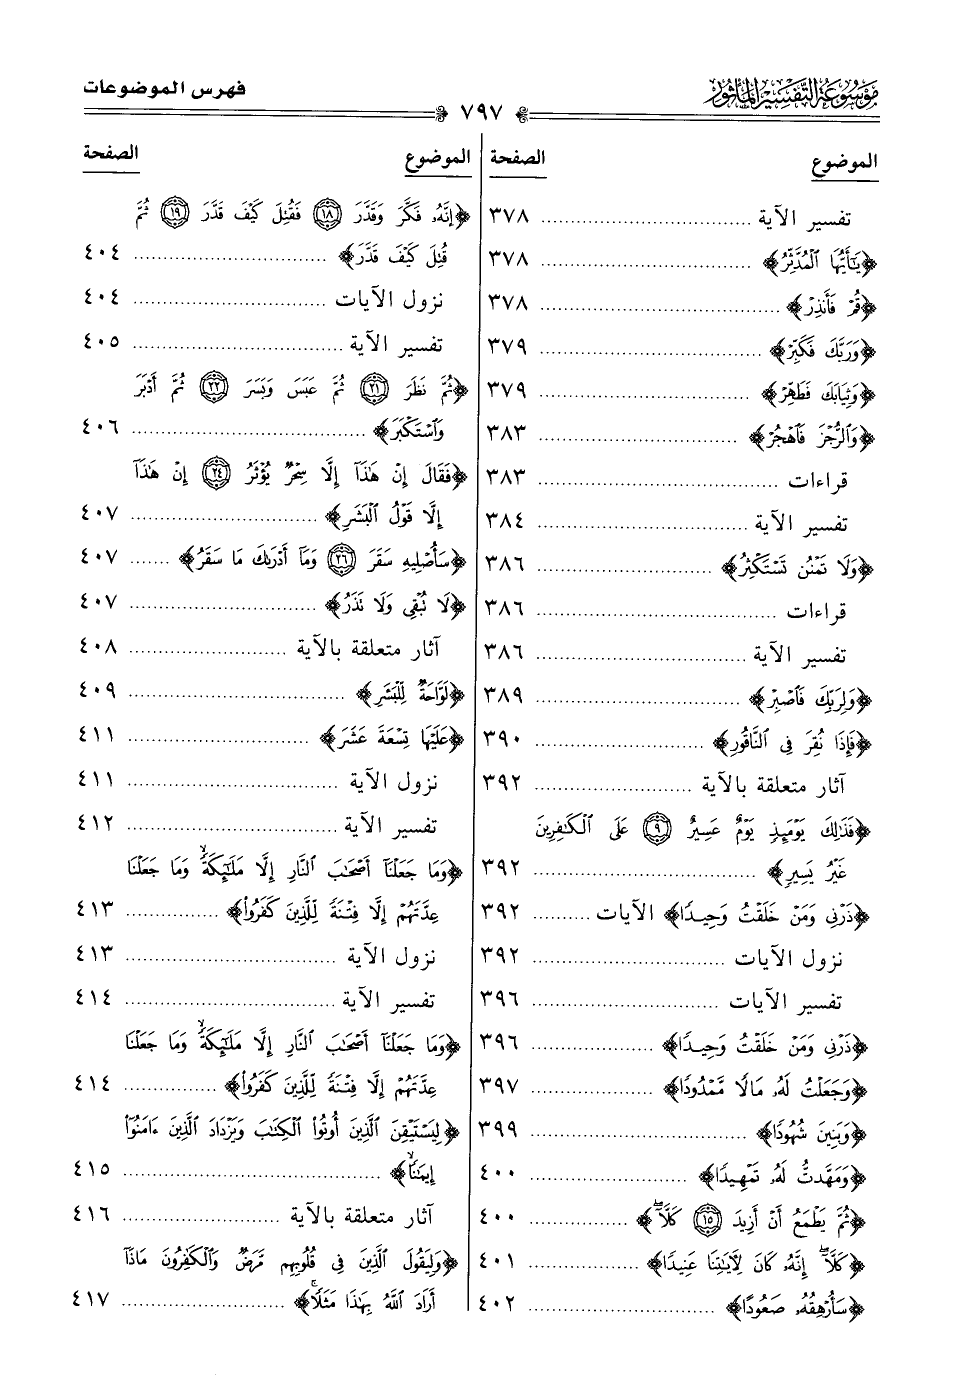 موسوعة التفسير المأثور
٧٩٧
فهرس الموضوعات
الموضوع الصفحة
تفسير الآية ٣٧٨
﴿يَٰٓأَيُّهَا ٱلۡمُدَّثِّرُ﴾ ٣٧٨
﴿قُمۡ فَأَنذِرۡ﴾ ٣٧٨
﴿وَرَبَّكَ فَكَبِّرۡ﴾ ٣٧٩
﴿وَثِيَابَكَ فَطَهِّرۡ﴾ ٣٧٩
﴿وَٱلرُّجۡزَ فَٱهۡجُرۡ﴾ ٣٨٣
قراءات ٣٨٣
تفسير الآية ٣٨٤
﴿وَلَا تَمۡنُن تَسۡتَكۡثِرُ﴾ ٣٨٦
قراءات ٣٨٦
تفسير الآية ٣٨٦
﴿وَلِرَبِّكَ فَٱصۡبِرۡ﴾ ٣٨٩
﴿فَإِذَا نُقِرَ فِي ٱلنَّاقُورِ﴾ ٣٩٠
آثار متعلقة بالآية ٣٩٢
﴿فَذَٰلِكَ يَوۡمَئِذٖ يَوۡمٌ عَسِيرٌ ٩ عَلَى ٱلۡكَٰفِرِينَ
غَيۡرُ يَسِيرٖ﴾ ٣٩٢
﴿ذَرۡنِي وَمَنۡ خَلَقۡتُ وَحِيدٗا﴾ الآيات ٣٩٢
نزول الآيات ٣٩٢
تفسير الآيات ٣٩٦
﴿ذَرۡنِي وَمَنۡ خَلَقۡتُ وَحِيدٗا﴾ ٣٩٦
﴿وَجَعَلۡتُ لَهُۥ مَالٗا مَّمۡدُودٗا﴾ ٣٩٧
﴿وَبَنِينَ شُهُودٗا﴾ ٣٩٩
﴿وَمَهَّدتُّ لَهُۥ تَمۡهِيدٗا﴾ ٤٠٠
﴿ثُمَّ يَطۡمَعُ أَنۡ أَزِيدَ ١٥ كَلَّآۖ﴾ ٤٠٠
﴿كَلَّآۖ إِنَّهُۥ كَانَ لِأٓيَٰتِنَا عَنِيدٗا﴾ ٤٠١
﴿سَأُرۡهِقُهُۥ صَعُودًا﴾ ٤٠٢
الموضوع الصفحة
﴿إِنَّهُۥ فَكَّرَ وَقَدَّرَ ١٨ فَقُتِلَ كَيۡفَ قَدَّرَ ١٩ ثُمَّ
قُتِلَ كَيۡفَ قَدَّرَ﴾ ٤٠٤
نزول الآيات ٤٠٤
تفسير الآية ٤٠٥
﴿ثُمَّ نَظَرَ ٢١ ثُمَّ عَبَسَ وَبَسَرَ ٢٢ ثُمَّ أَدۡبَرَ
وَٱسۡتَكۡبَرَ﴾ ٤٠٦
﴿فَقَالَ إِنۡ هَٰذَآ إِلَّا سِحۡرٞ يُؤۡثَرُ ٢٤ إِنۡ هَٰذَآ
إِلَّا قَوۡلُ ٱلۡبَشَرِ﴾ ٤٠٧
﴿سَأُصۡلِيهِ سَقَرَ ٢٦ وَمَآ أَدۡرَىٰكَ مَا سَقَرُ﴾ ٤٠٧
﴿لَا تُبۡقِي وَلَا تَذَرُ﴾ ٤٠٧
آثار متعلقة بالآية ٤٠٨
﴿لَوَّاحَةٞ لِّلۡبَشَرِ﴾ ٤٠٩
﴿عَلَيۡهَا تِسۡعَةَ عَشَرَ﴾ ٤١١
نزول الآية ٤١١
تفسير الآية ٤١٢
﴿وَمَا جَعَلۡنَآ أَصۡحَٰبَ ٱلنَّارِ إِلَّا مَلَٰٓئِكَةٗۖ وَمَا جَعَلۡنَا
عِدَّتَهُمۡ إِلَّا فِتۡنَةٗ لِّلَّذِينَ كَفَرُواْ﴾ ٤١٣
نزول الآية ٤١٣
تفسير الآية ٤١٤
﴿وَمَا جَعَلۡنَآ أَصۡحَٰبَ ٱلنَّارِ إِلَّا مَلَٰٓئِكَةٗۖ وَمَا جَعَلۡنَا
عِدَّتَهُمۡ إِلَّا فِتۡنَةٗ لِّلَّذِينَ كَفَرُواْ﴾ ٤١٤
﴿لِيَسۡتَيۡقِنَ ٱلَّذِينَ أُوتُواْ ٱلۡكِتَٰبَ وَيَزۡدَادَ ٱلَّذِينَ ءَامَنُوٓاْ
إِيمَٰنٗا﴾ ٤١٥
آثار متعلقة بالآية ٤١٦
﴿وَلِيَقُولَ ٱلَّذِينَ فِي قُلُوبِهِم مَّرَضٞ وَٱلۡكَٰفِرُونَ مَاذَآ
أَرَادَ ٱللَّهُ بِهَٰذَا مَثَلٗاۚ﴾ ٤١٧